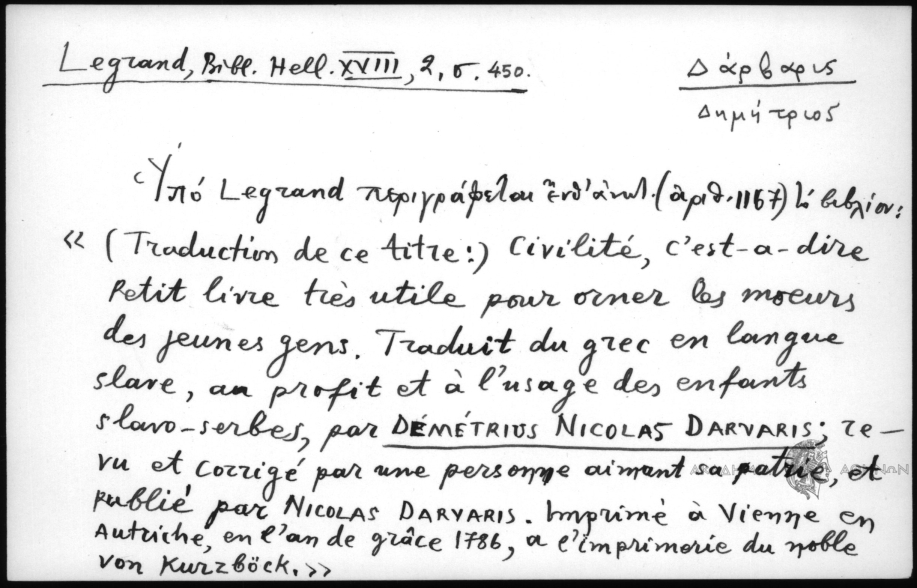 Legrand, Bibl. Hell. XVIII, 2, σ. 450.
Δάρβαρις
Δημήτριος
Ὑπό Legrand περιγράφεται ἐνθ' ἀνωτ. (ἀριθ. 1167) τό βιβλίον:
« (Traduction de ce titre:) Civilité, c'est-a-dire
Petit livre très utile pour orner les moeurs
des jeunes gens. Traduit du grec en langue
slave, au profit et à l'usage des enfants
slavo-serbes, par DÉMÉTRIUS NICOLAS DARVARIS; re-
vu et corrigé par une personne aimant sa patrie, et
publié par NICOLAS DARVARIS. Imprimé à Vienne en
Autriche, en l'an de grâce 1786, a l'imprimerie du noble
von Kurzböck.»